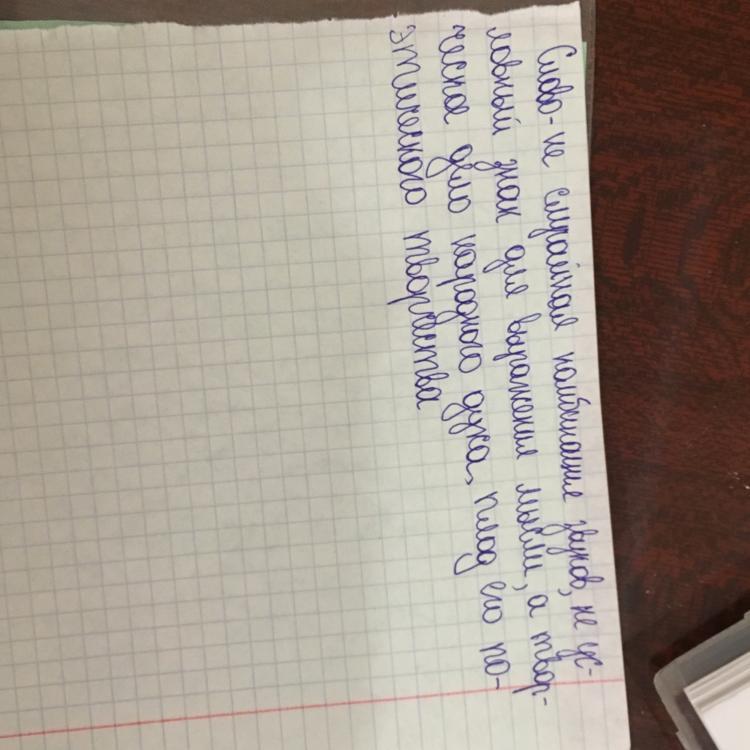 Слово - не случайная комбинация звуков, не ус-
ловный знак для выражения мысли, а твор-
ческое дело народного духа, плод его по-
этического творчества